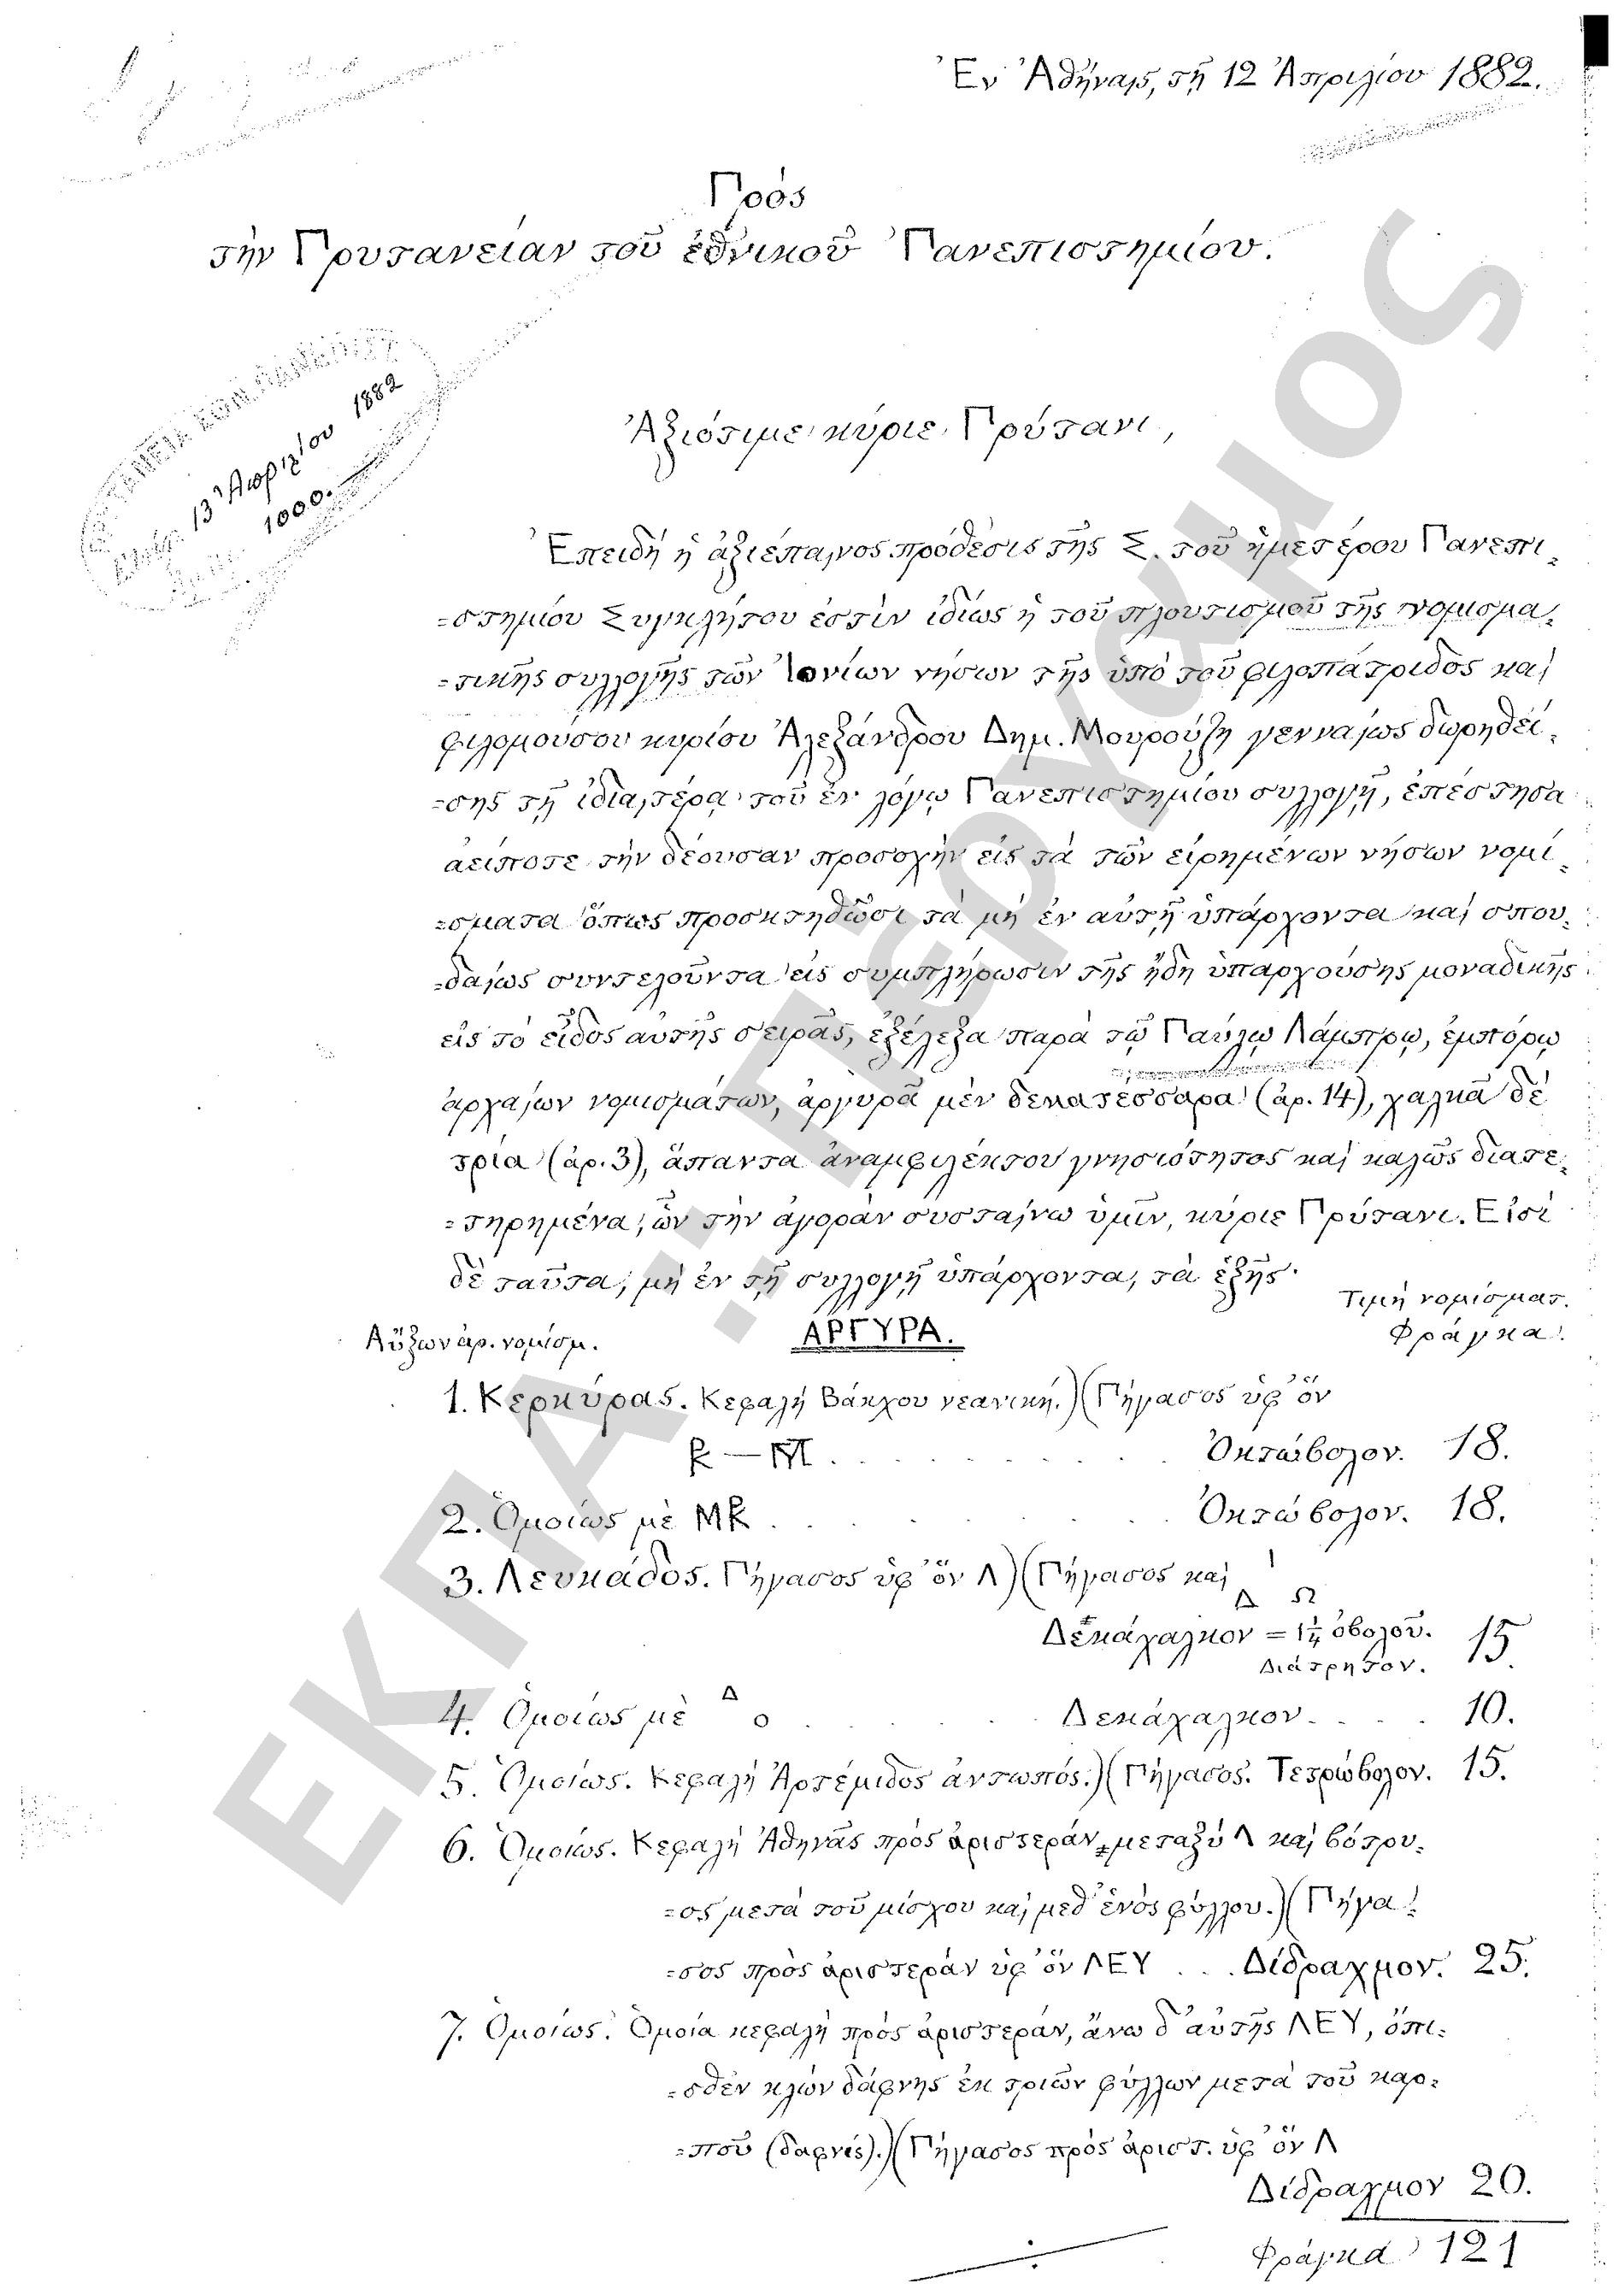 Ἐν Ἀθήναις, τῇ 12 Ἀπριλίου 1882.
Πρὸς
τὴν Πρυτανείαν τοῦ ἐθνικοῦ Πανεπιστημίου.
13 Ἀπριλίου 1882
1000.
Ἀξιότιμε κύριε Πρύτανι,
Ἐπειδὴ ἡ ἀξιέπαινος πρόθεσις τῆς Σ. τοῦ ἡμετέρου Πανεπι-
-στημίου Συγκλήτου ἐστὶν ἰδίως ἡ τοῦ πλουτισμοῦ τῆς νομισμα-
-τικῆς συλλογῆς τῶν Ἰονίων νήσων τῆς ὑπὸ τοῦ φιλοπάτριδος καὶ
φιλομούσου κυρίου Ἀλεξάνδρου Δημ. Μουρούζη γενναίως δωρηθεί-
-σης τῇ ἰδιαιτέρᾳ τοῦ ἐν λόγῳ Πανεπιστημίου συλλογῇ, ἐπέστησα
ἀείποτε τὴν δέουσαν προσοχὴν εἰς τὰ τῶν εἰρημένων νήσων νομί-
-σματα ὅπως προσκτηθῶσι τὰ μὴ ἐν αὐτῇ ὑπάρχοντα καὶ σπου-
-δαίως συντελοῦντα εἰς συμπλήρωσιν τῆς ἤδη ὑπαρχούσης μοναδικῆς
εἰς τὸ εἶδος αὐτῆς σειρᾶς, ἐξέλεξα παρὰ τῷ Παύλῳ Λάμπρῳ, ἐμπόρῳ
ἀρχαίων νομισμάτων, ἀργυρᾶ μὲν δεκατέσσαρα (ἀρ. 14), χαλκᾶ δὲ
τρία (ἀρ. 3), ἅπαντα ἀναμφιλέκτου γνησιότητος καὶ καλῶς διατε-
-τηρημένα, ὧν τὴν ἀγορὰν συσταίνω ὑμῖν, κύριε Πρύτανι. Εἰσὶ
δὲ ταῦτα, μὴ ἐν τῇ συλλογῇ ὑπάρχοντα, τὰ ἑξῆς·
Τιμὴ νομίσματ.
Αὔξων ἀρ. νομίσμ. ΑΡΓΥΡΑ. Φράγκα.
1. Κερκύρας. Κεφαλὴ Βάκχου νεανική.)(Πήγασος ὑφ' ὃν
Ὀκτώβολον. 18.
2. Ὁμοίως μὲ Ὀκτώβολον. 18.
3. Λευκάδος. Πήγασος ὑφ' ὃν Λ)(Πήγασος καὶ Ι
Δ Ω
Δεκάχαλκον = 1 1/4 ὀβολοῦ. 15
Διάτρητον.
4. Ὁμοίως μὲ Δ Ο Δεκάχαλκον. 10.
5. Ὁμοίως. Κεφαλὴ Ἀρτέμιδος ἀντωπός.)(Πήγασος. Τετρώβολον. 15.
6. Ὁμοίως. Κεφαλὴ Ἀθηνᾶς πρὸς ἀριστεράν, μεταξὺ Λ καὶ βότρυ-
-ος μετὰ τοῦ μίσχου καὶ μεθ' ἑνὸς φύλλου.)(Πήγα-
-σος πρὸς ἀριστερὰν ὑφ' ὃν ΛΕΥ ... Δίδραχμον. 25.
7. Ὁμοίως. Ὁμοία κεφαλὴ πρὸς ἀριστεράν, ἄνω δ' αὐτῆς ΛΕΥ, ὄπι-
-σθεν κλὼν δάφνης ἐκ τριῶν φύλλων μετὰ τοῦ καρ-
-ποῦ (δαφνίς).)(Πήγασος πρὸς ἀριστ. ὑφ' ὃν Λ
Δίδραχμον 20.
Φράγκα 121